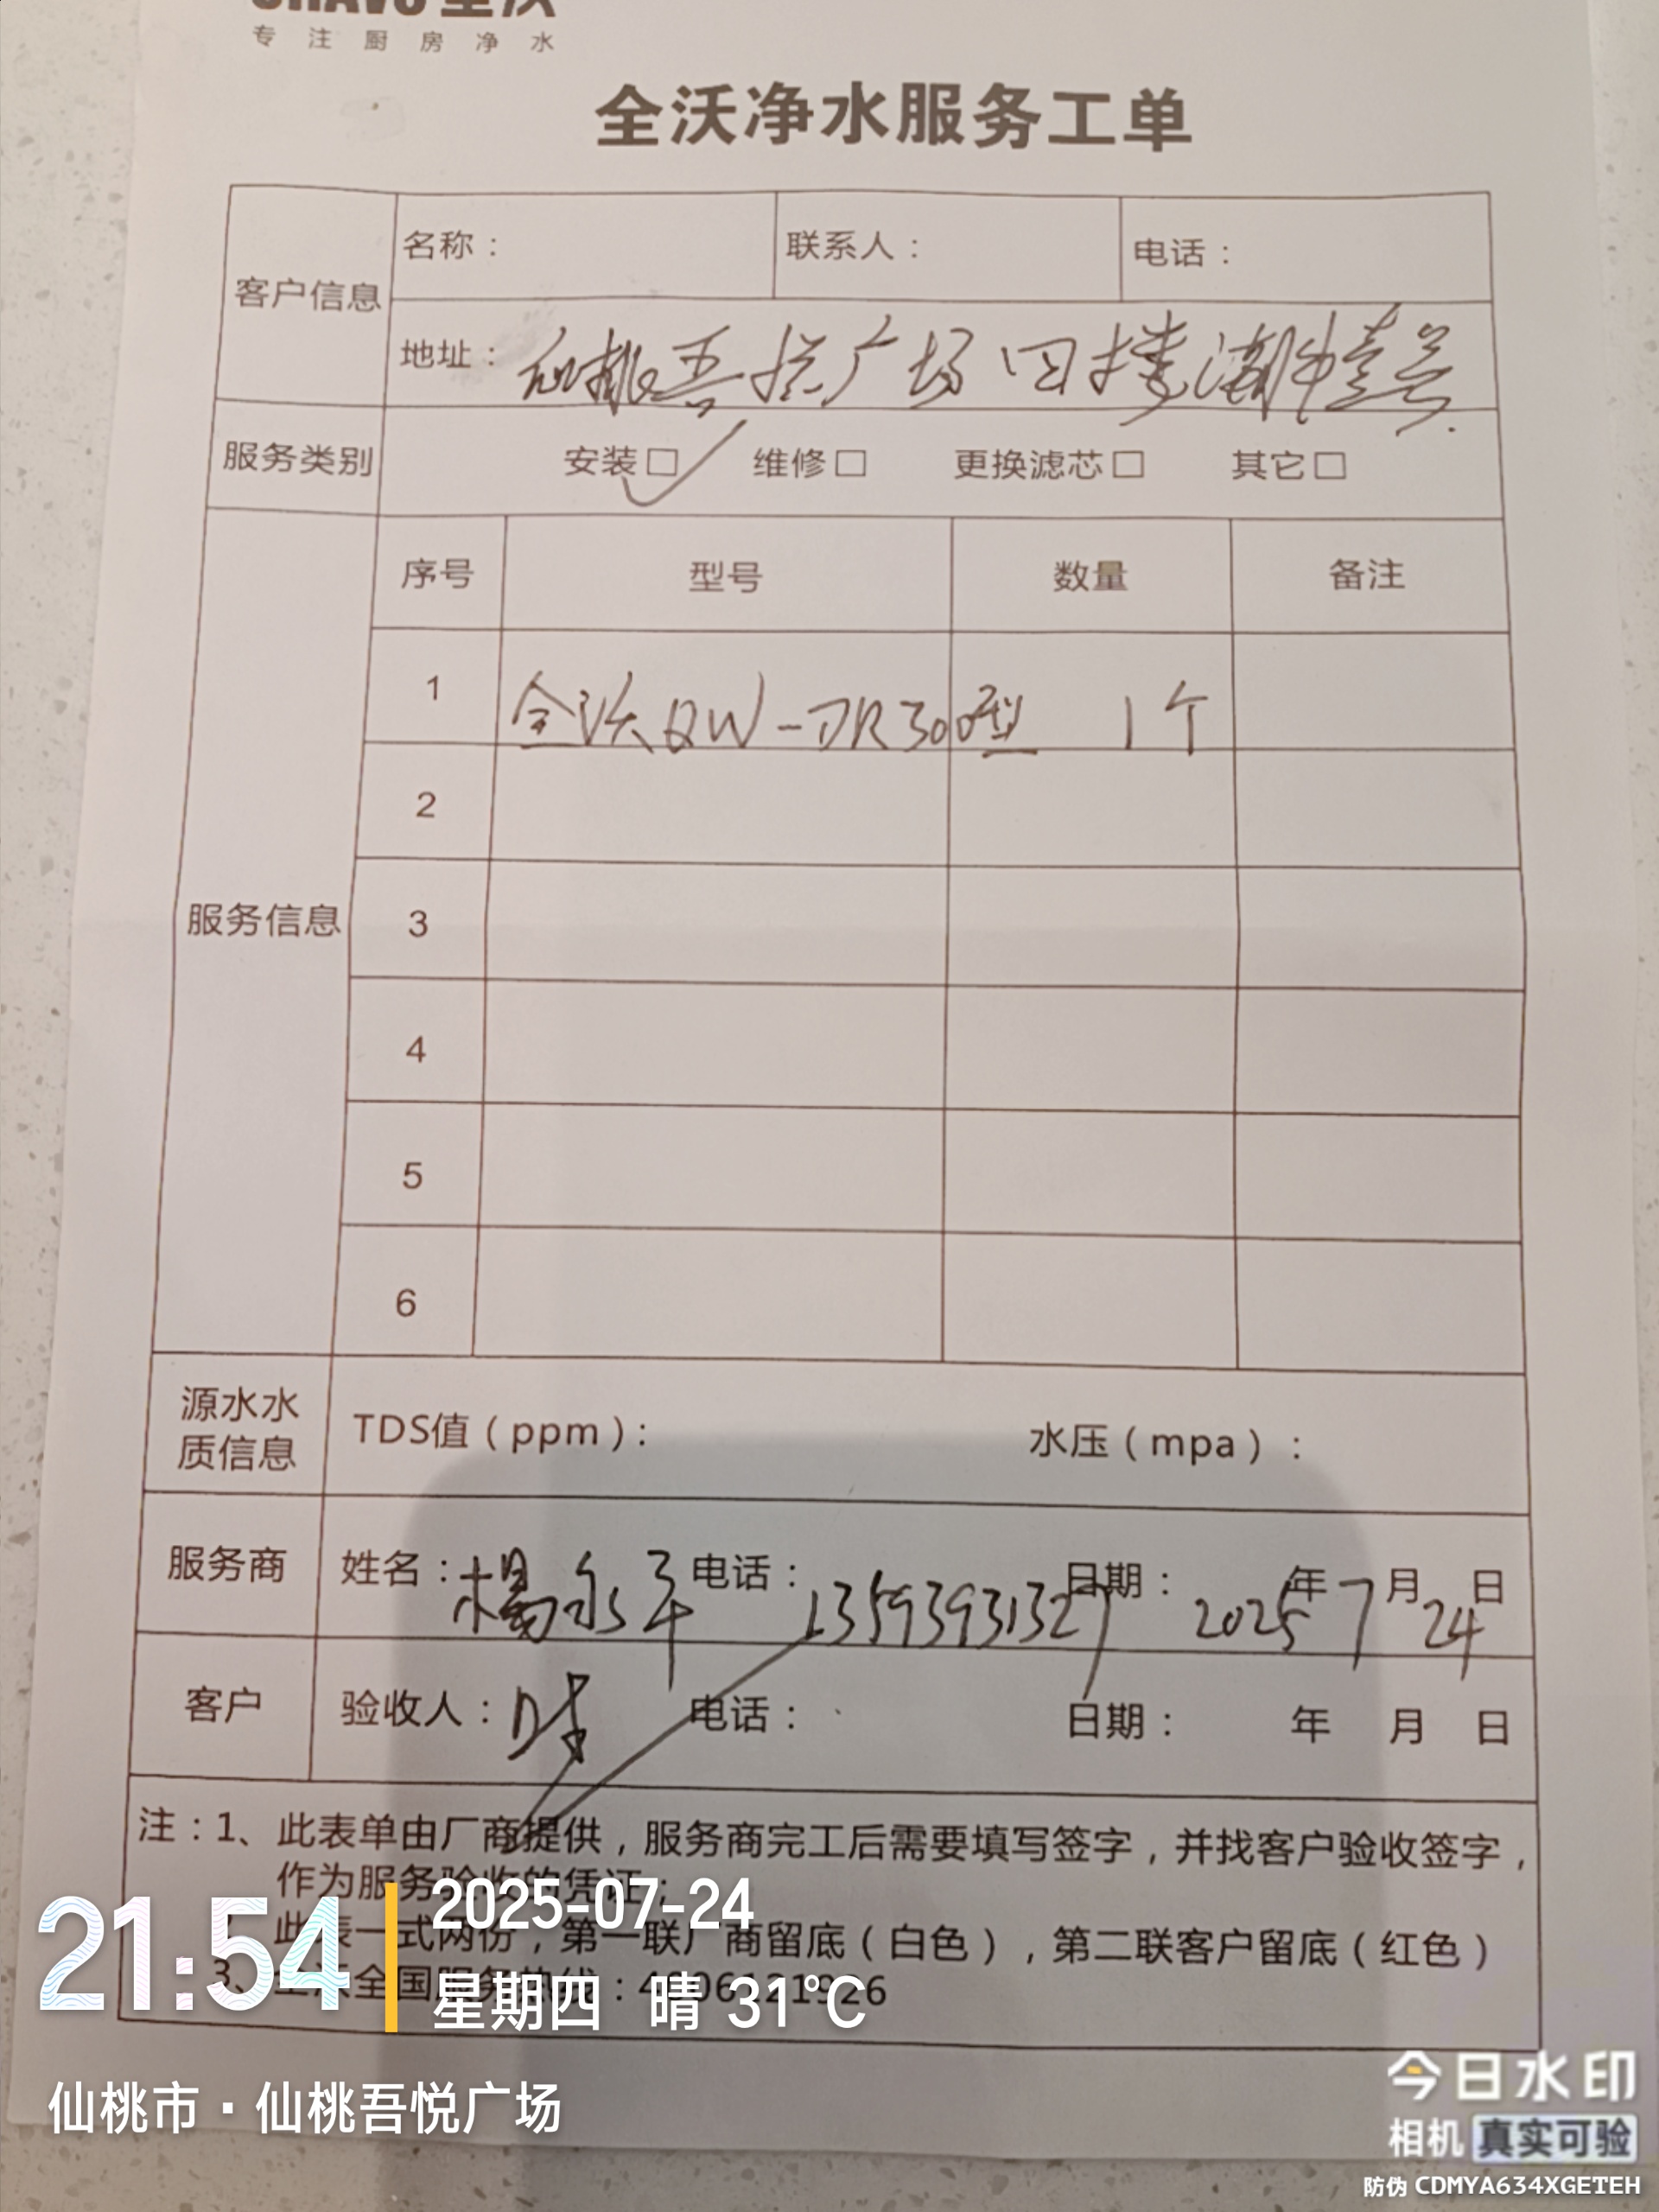 专注厨房净水
全沃净水服务工单
客户信息 名称： 联系人： 电话：
地址：仙桃吾悦广场四楼潮牛壹号
服务类别 安装□ 维修□ 更换滤芯□ 其它□
服务信息 序号 型号 数量 备注
1 全沃QW-DR300型 1个
2
3
4
5
6
源水水质信息 TDS值（ppm）： 水压（mpa）：
服务商 姓名：杨永平 电话：13593931327 日期：2025年7月24日
客户 验收人： 电话： 日期： 年 月 日
注：1、此表单由厂商提供，服务商完工后需要填写签字，并找客户验收签字，
作为服务验收的凭证；
此表一式两份，第一联厂商留底（白色），第二联客户留底（红色）
3、全沃全国服务热线：4006121926
21:54
2025-07-24
星期四 晴 31℃
仙桃市·仙桃吾悦广场
今日水印
相机 真实可验
防伪 CDMYA634XGETEH